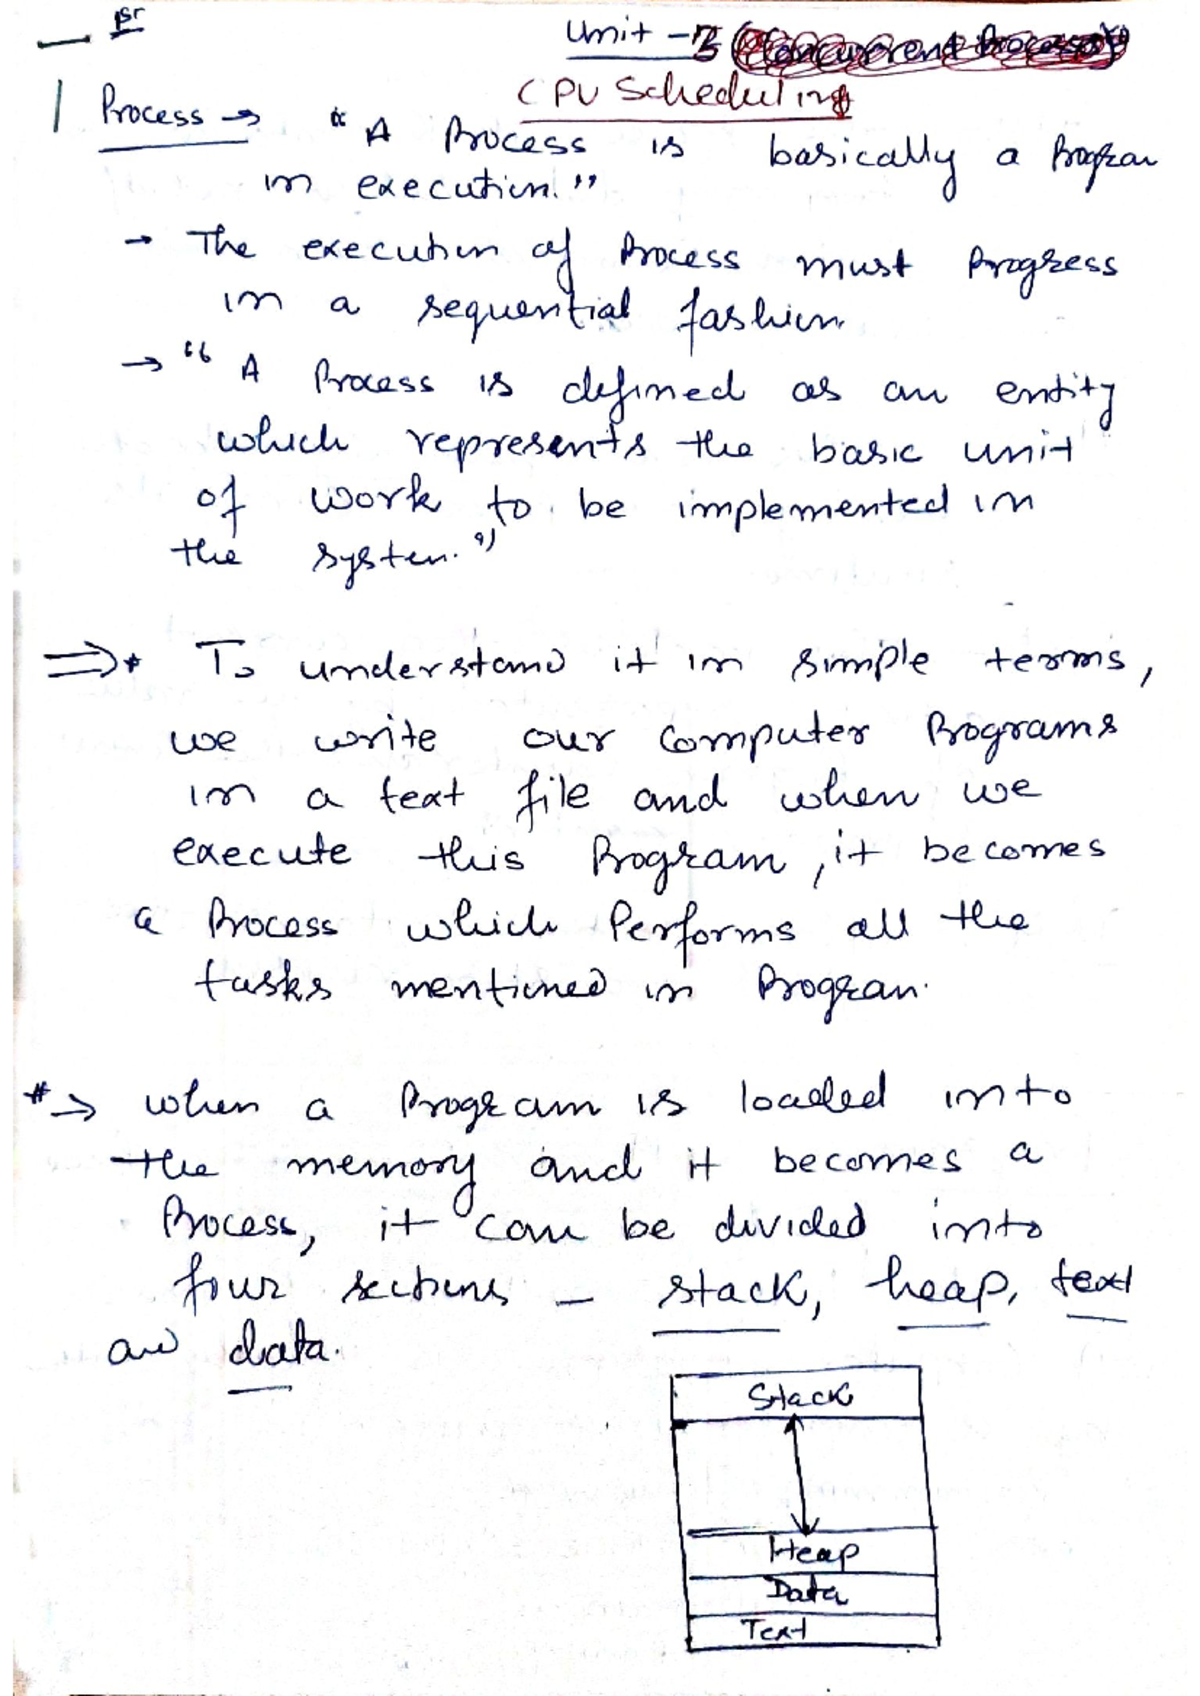 1st
Unit - 3 (Concurrent Process)
CPU Scheduling
1 Process → "A Process is basically a Program
in execution."
→ The execution of Process must Progress
in a sequential fashion
→ "A Process is defined as an entity
which represents the basic unit
of work to be implemented in
the system."
⇒* To understand it in simple terms,
we write our computer Programs
in a text file and when we
execute this Program, it becomes
a Process which Performs all the
tasks mentioned in Program.
*→ when a Program is loaded into
the memory and it becomes a
Process, it can be divided into
four sections - stack, heap, text
and data.
Stack
Heap
Data
Text